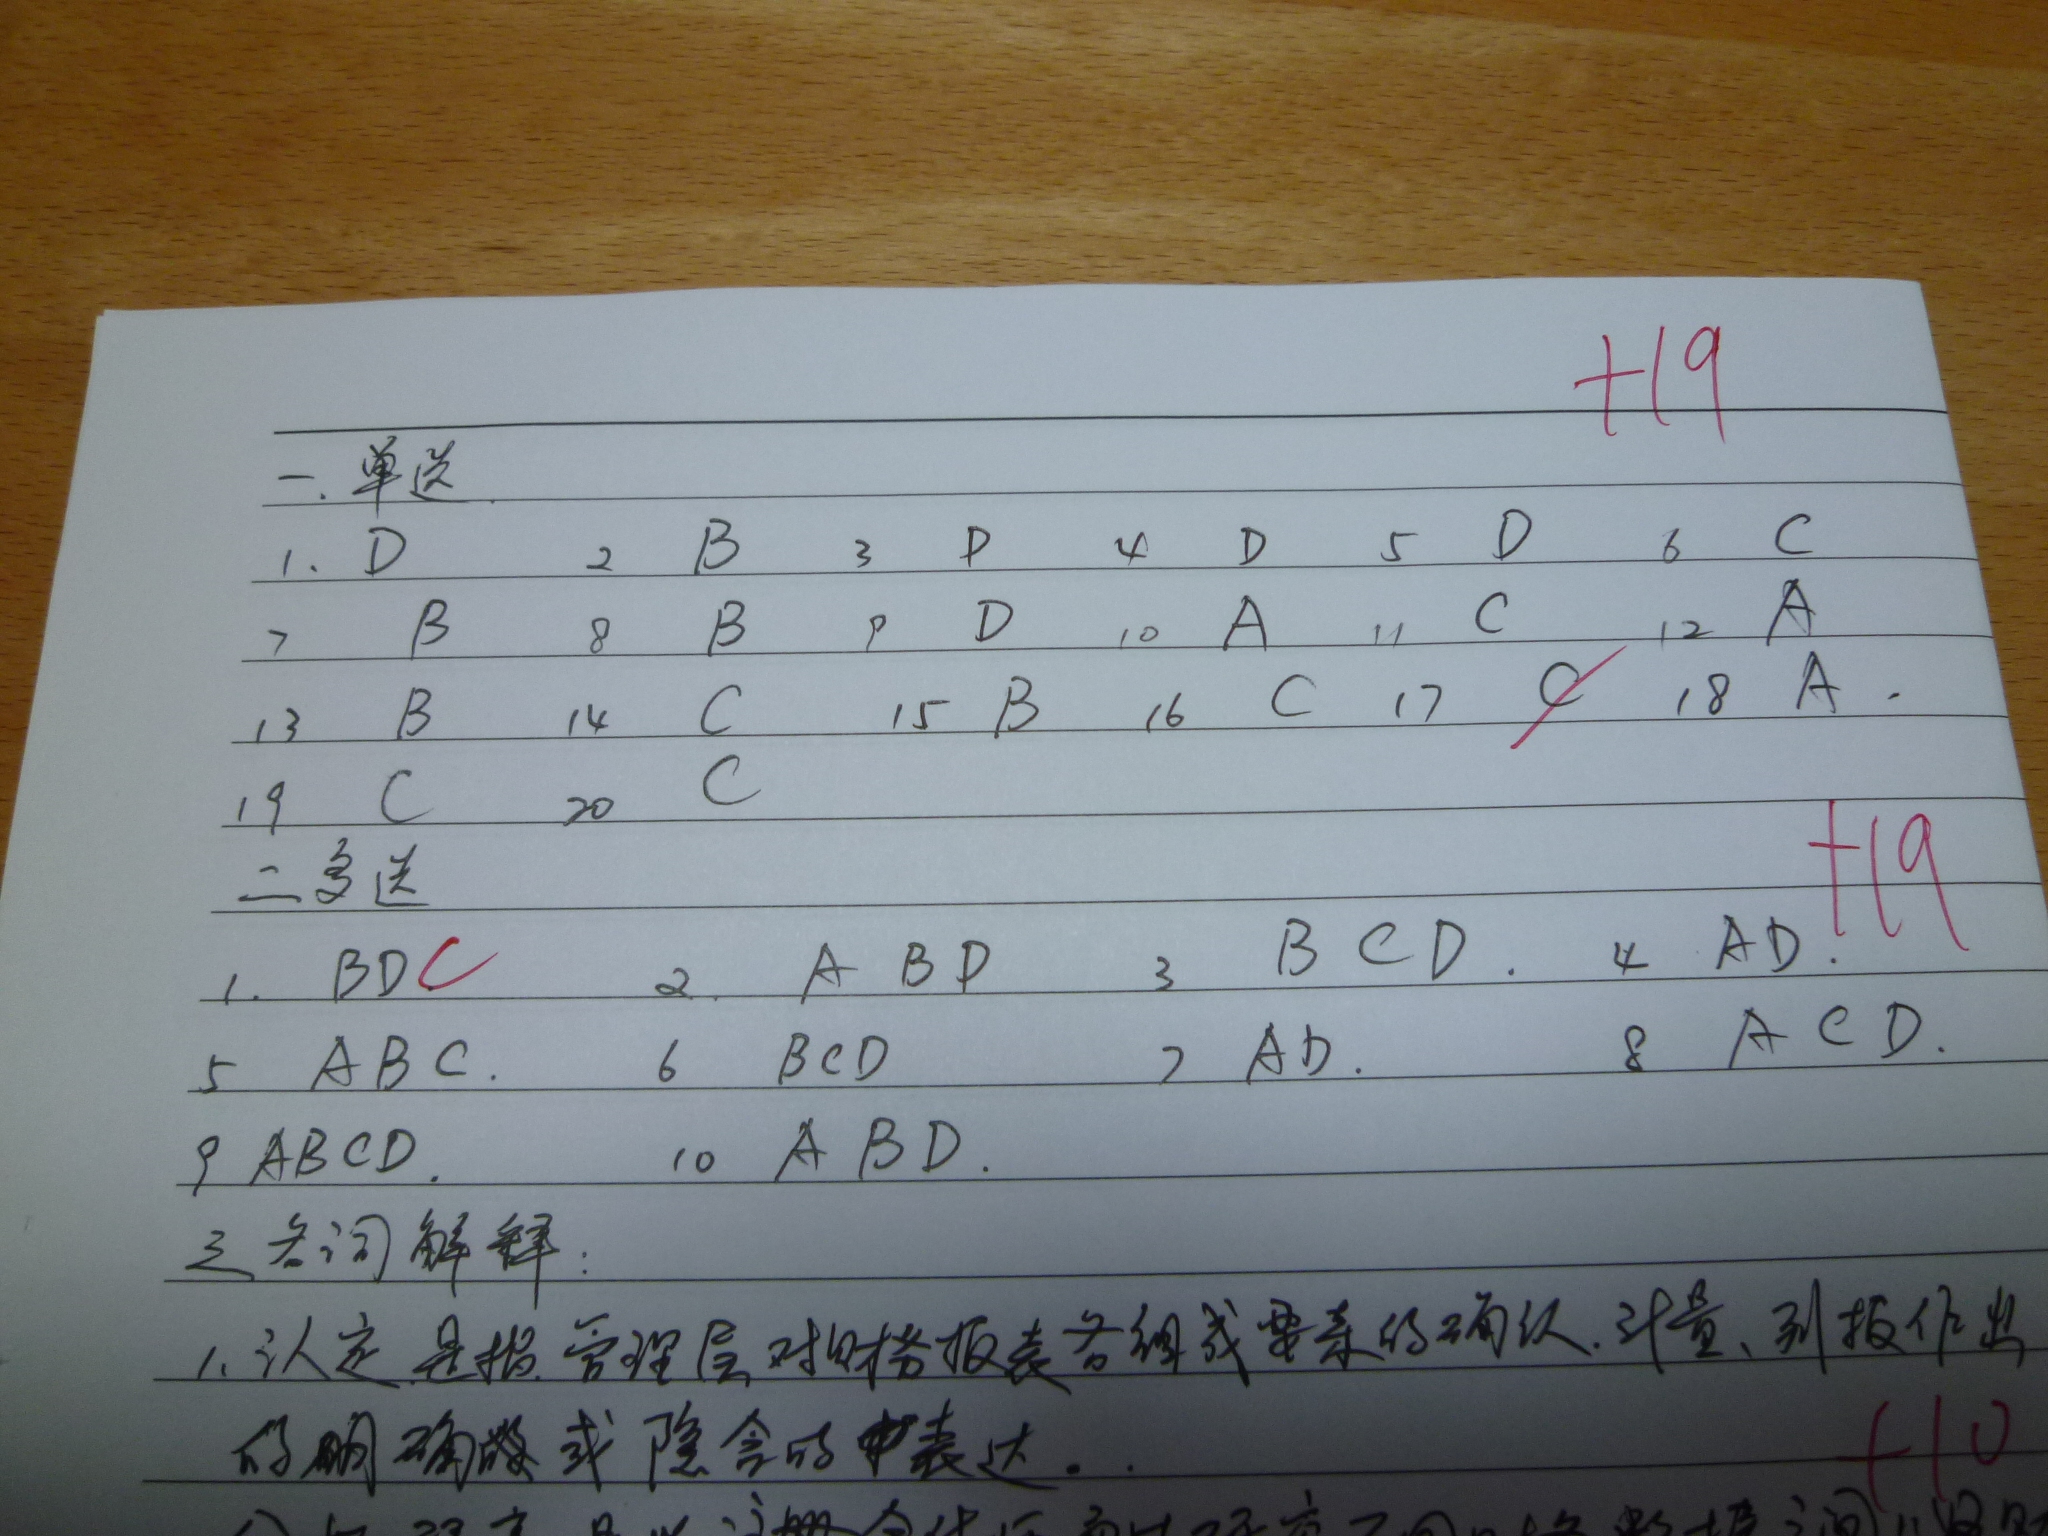 +19
一.单选
1. D 2 B 3 D 4 D 5 D 6 C
7 B 8 B 9 D 10 A 11 C 12 A
13 B 14 C 15 B 16 C 17 C 18 A.
19 C 20 C
+19
二多选
1. BDC 2. ABD 3 BCD. 4 AD.
5 ABC. 6 BCD 7 AD. 8 ACD.
9 ABCD. 10 ABD.
三名词解释:
1.认定是指管理层对财务报表各组成要素的确认.计量、列报作出
的明确或隐含的表达.
+10